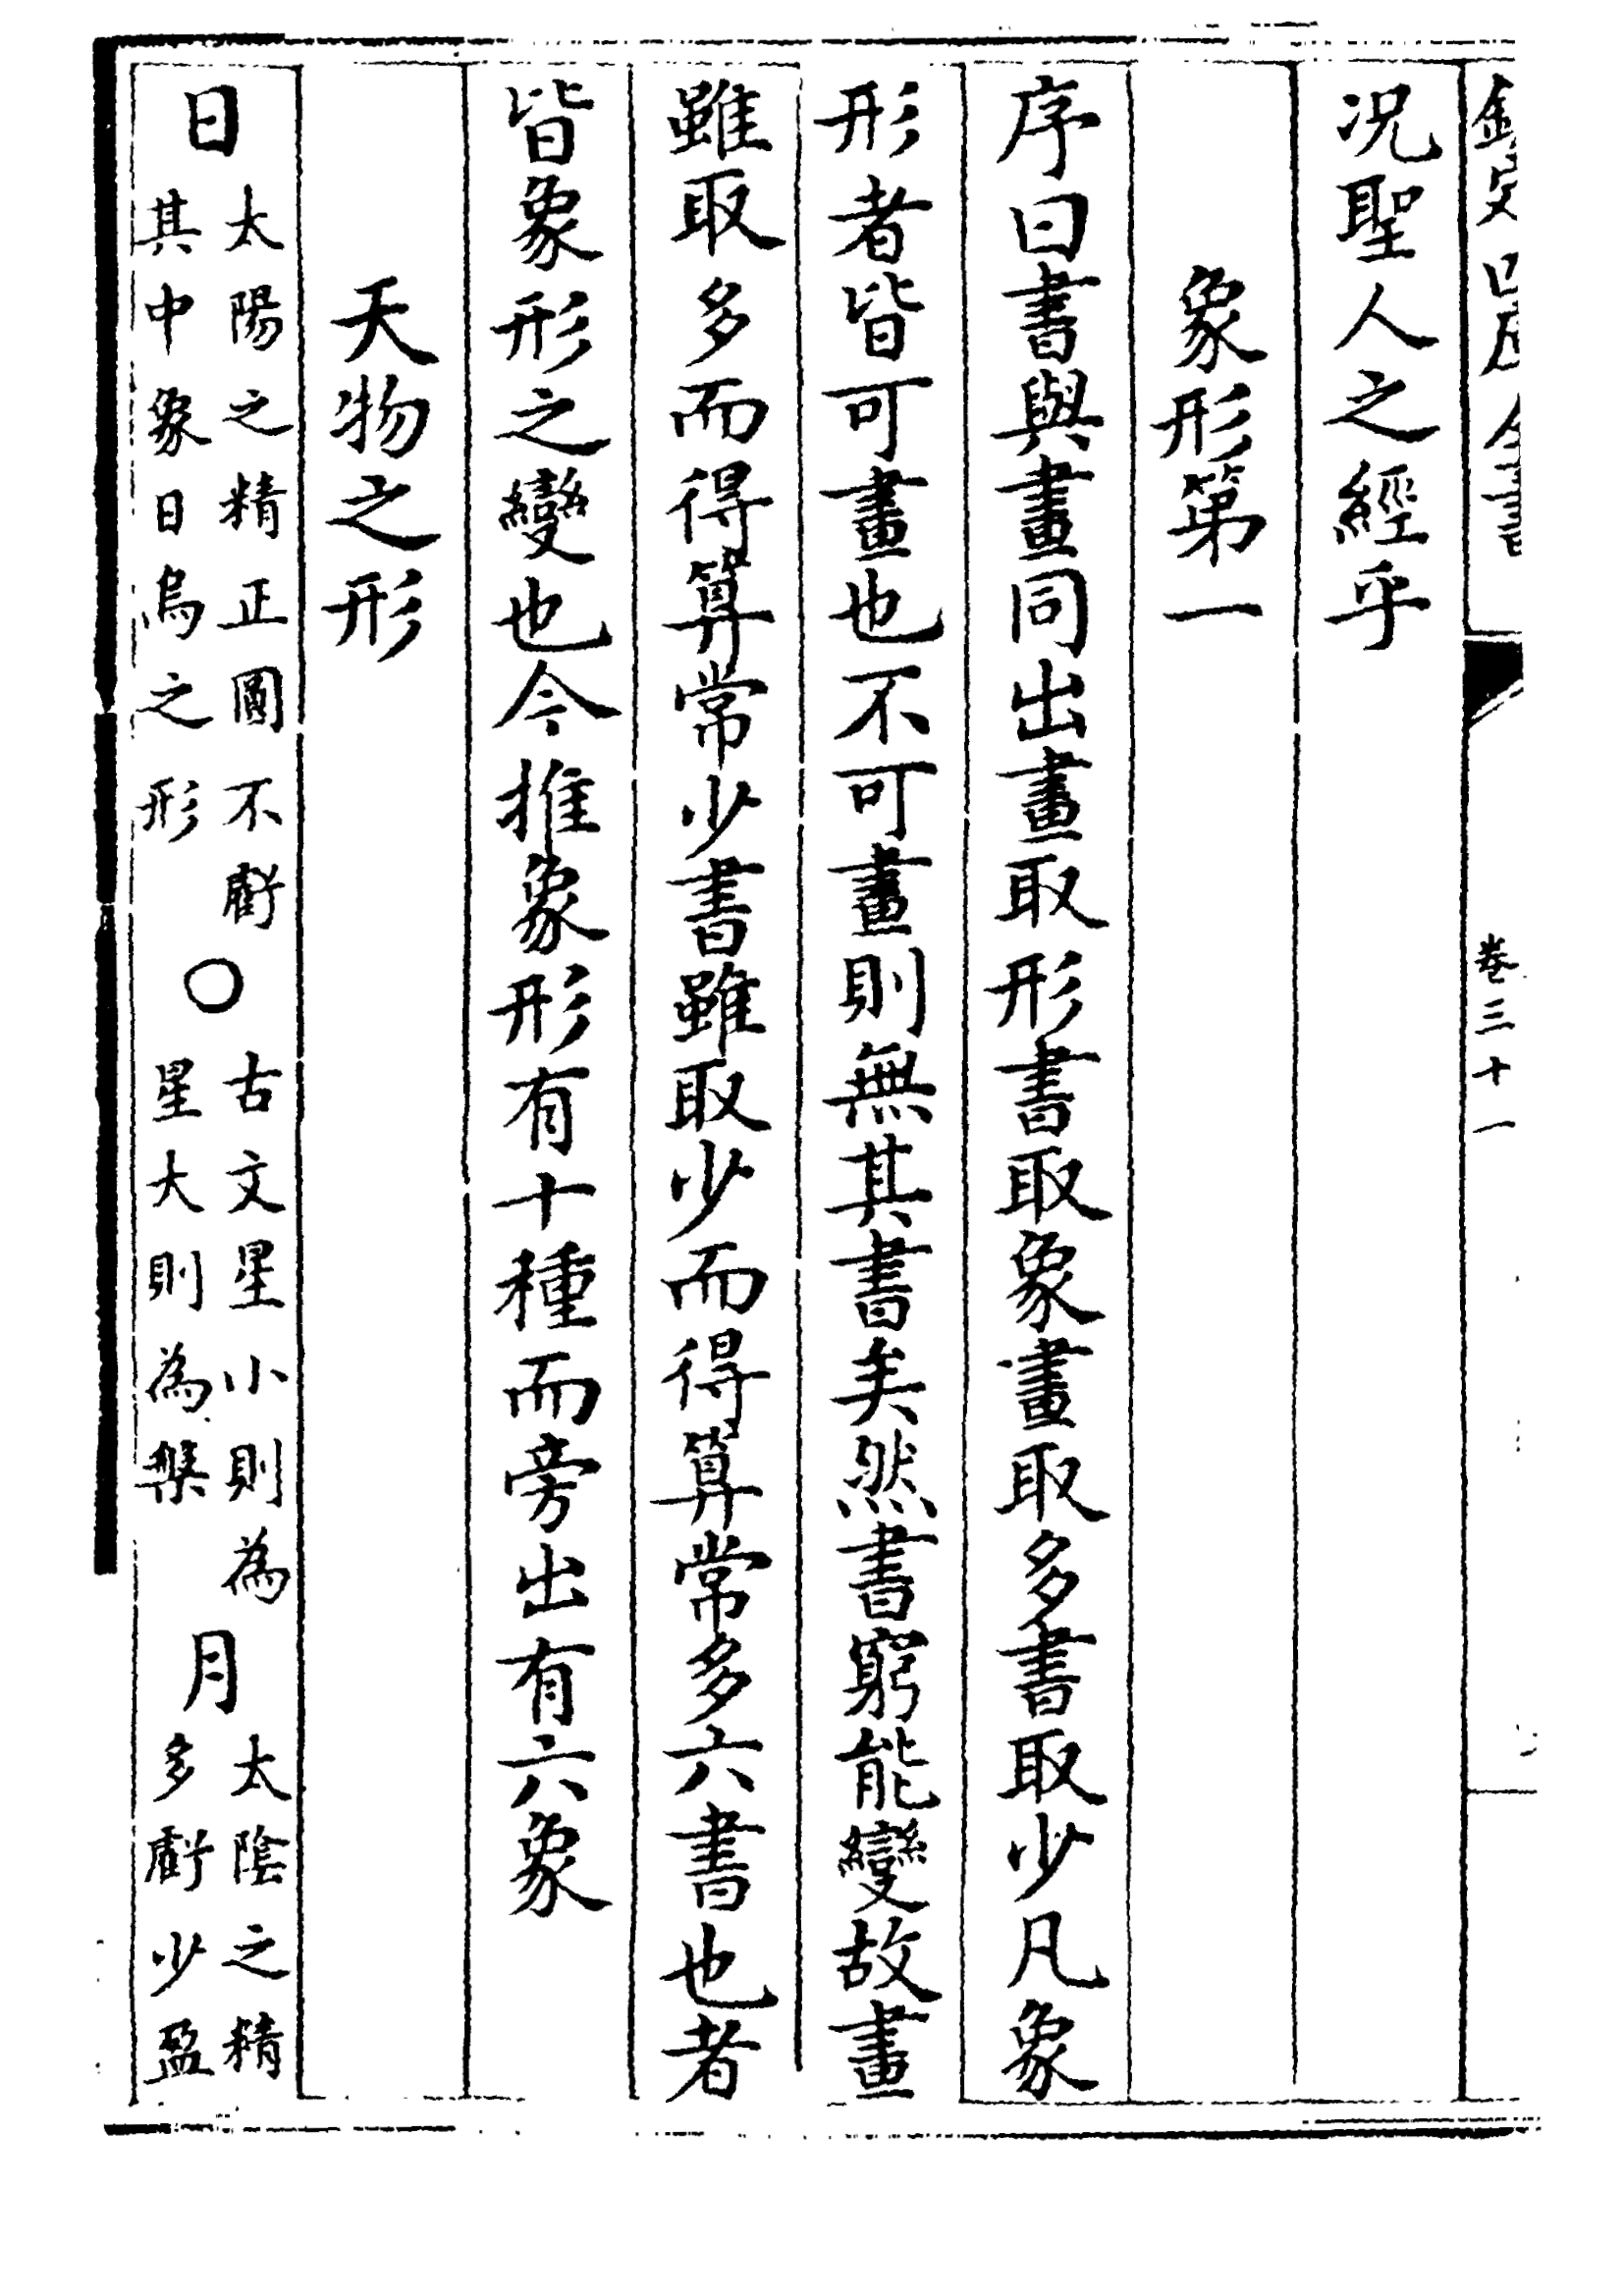 欽定四庫全書
卷三十一
况聖人之經乎
象形第一
序曰書與畫同出畫取形書取象畫取多書取少凡象
形者皆可畫也不可畫則無其書矣然書窮能變故畫
雖取多而得算常少書雖取少而得算常多六書也者
皆象形之變也今推象形有十種而旁出有六象
天物之形
日
太陽之精正圓不虧
其中象日烏之形
○
古文星小則為
星大則為
月
太陰之精
多虧少盈